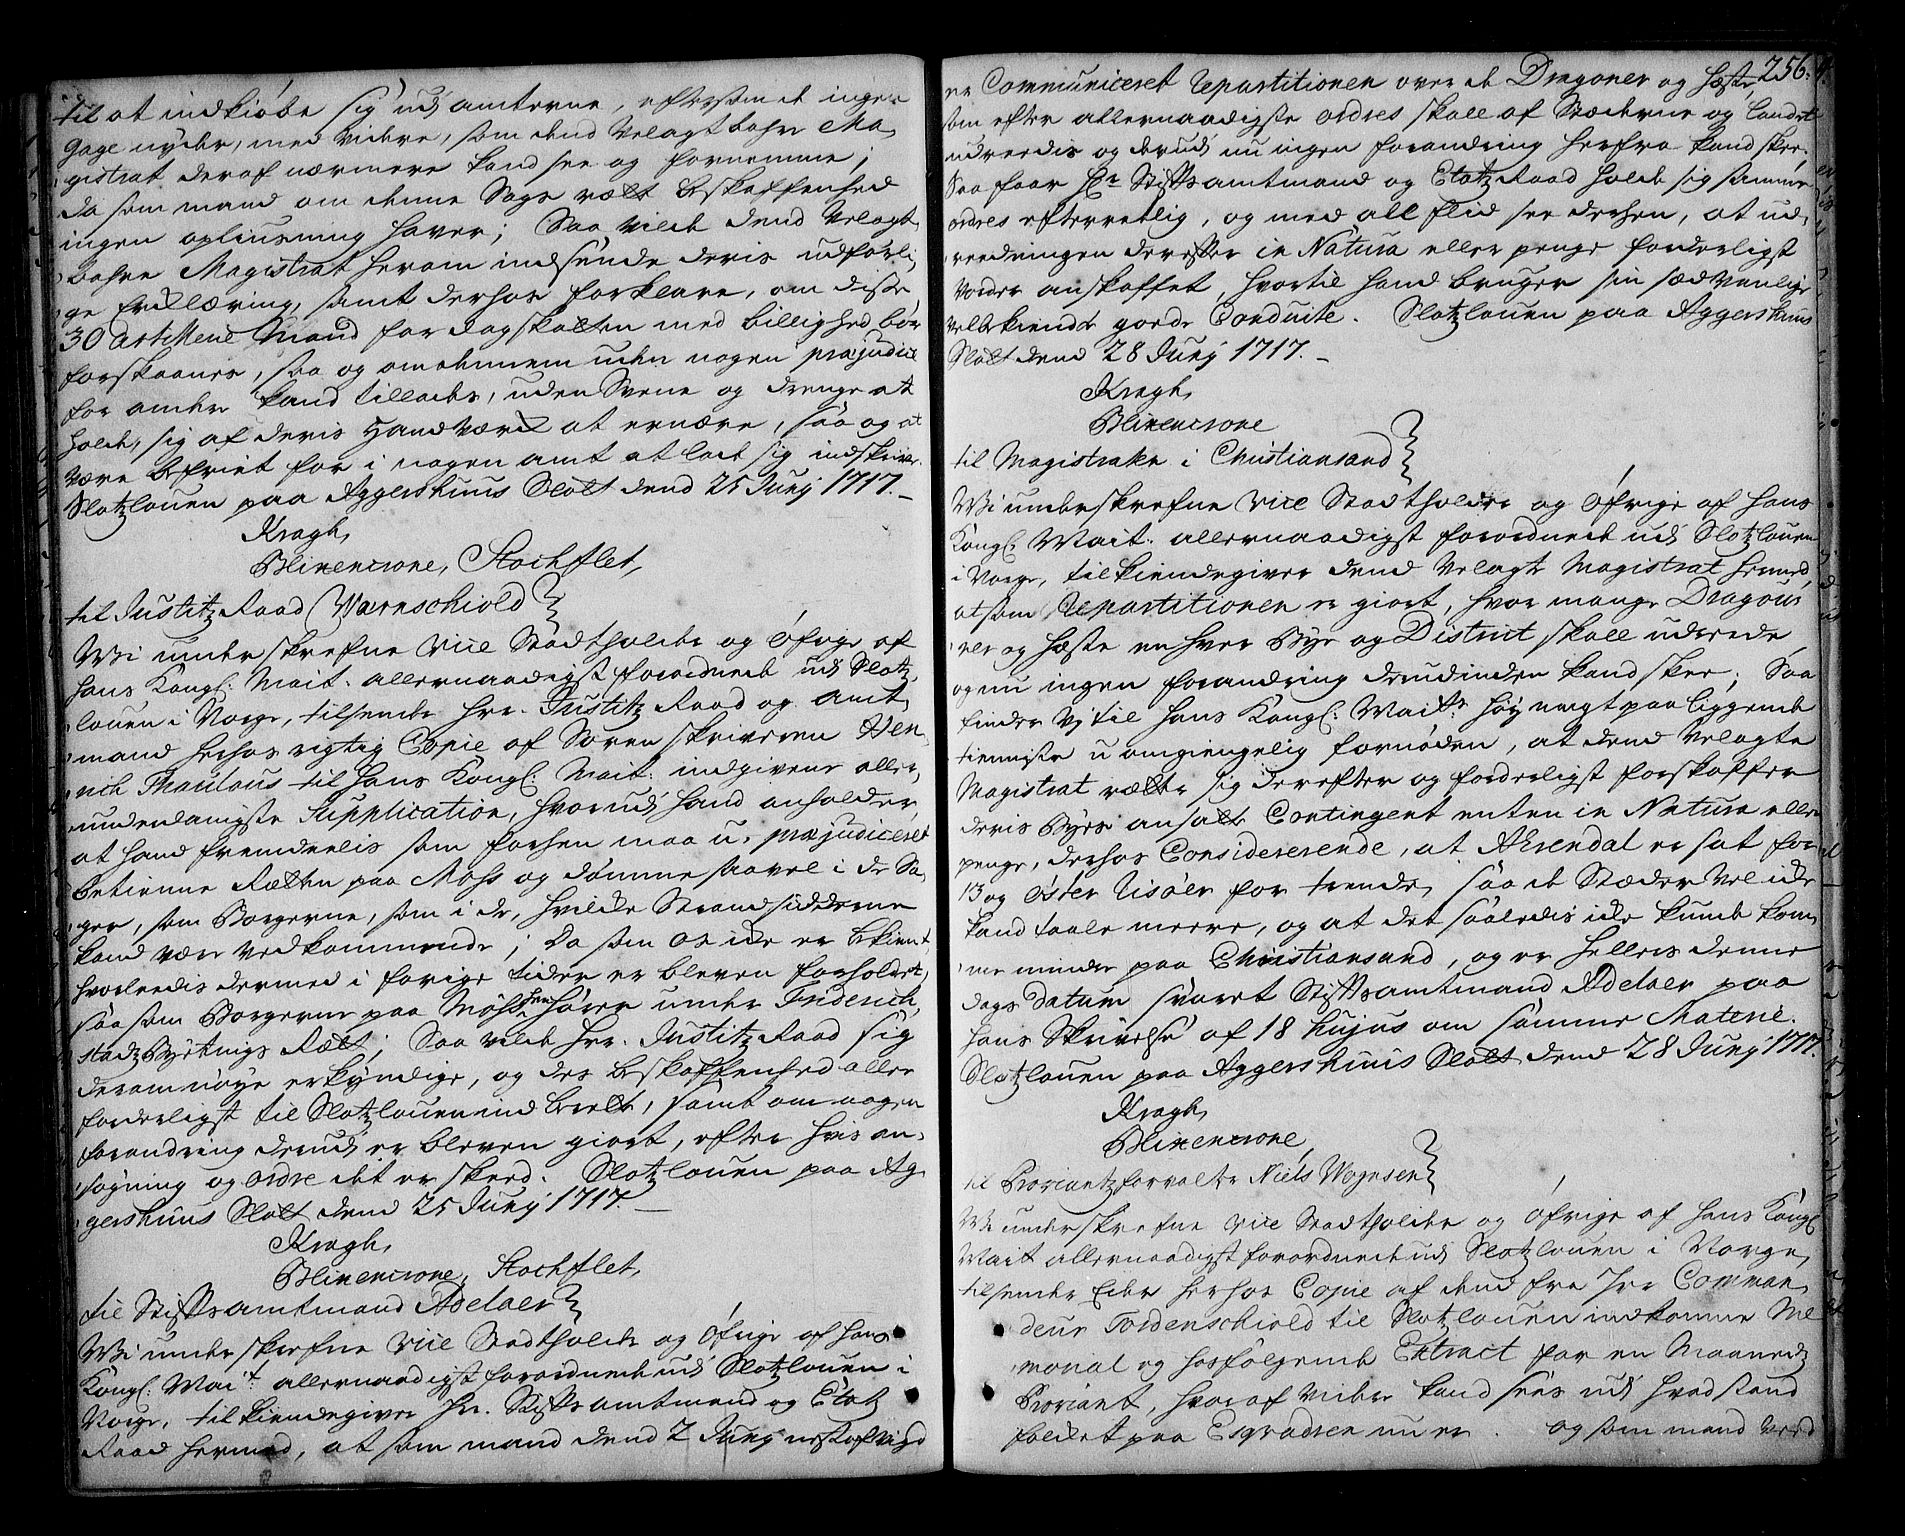 til at indkiøbe sig udj amterne, eftersom de ingen
gage nyder, med videre, som dend Velagtbahre Ma,
gistrat deraf nærmere kand see og fornemme;
da som mand om denne Sags rætt beskaffenhed
ingen opliusning haver; Saa vilde dend Velagt,
bahre Magistrat herom indsende deris udførli,
ge Erklæring, samt derhos forklare, om disse
30 Artillerie Mand for dagskatten med billighed bør
forskaanes, saa og om dennem uden nogen præjudice
for andre kand tillades, uden Svene og drenge at
holde, sig af deris Handværck at ernære, saa og at
være befriet for i nogen amt at lade sig indskrive.
Slotzlouen paa Aggershuus Slott dend 25 Junj 1717.
Kragh,
Blixencrone, Stochflet,
til Justitz Raad Wærnschiold
Wi underskrefne Vice Stadtholder og Øfrige af
hans Kongl: Mait: allernaadigst forordnede udj Slotz,
louen i Norge, tilsende Hr. Justitz Raad og Amt,
mand herhos rigtig Copie af Sorenskriveren Hen,
rich Thaulous til hans Kongl: Mait: indgivene aller,
underdanigste Supplication, hvorudj hand anholder,
at hand fremdeelis som forhen maa u-præjudiceret
betienne Rætten paa Moss og dømme saavel i de Sa,
ger, som Borgerne, som i de, hvilcke Strandsidderne
kand være vedkommende; Da som os icke er bekient,
hvorleedis dermed i forige tider er bleven forholdet,
saasom Borgerne paa Moss henhører under Friderich,
stadz Byetings Rætt; Saa vilde Hr. Justitz Raad sig
derom nøye erkyndige, og des beskaffenhed aller
forderligst til Slotzlouen indberette, samt om nogen
forandring derudj er bleven giort, efter hvis an,
søgning og ordre det er skeed. Slotzlouen paa Ag,
gershuus Slott dend 25 Junj 1717.
Kragh,
Blixencrone, Stochflet,
til Stiftsamtmand Adelaer
Wi underskrefne Vice Stadtholder og Øfrige af hans
Kongl: Mait: allernaadigst forordnede udj Slotzlouen i
Norge, tilkiendegiver Hr. Stiftsamtmand og Etatz
Raad hermed, at som mand dend 2 Junj nestafvigt
256.
er Communiceret Repartitionen over de Dragoner og Heste,
som efter allernaadigste ordres skall af Stæderne og Landet
udreedis og derudj nu ingen forandring herfra kand skee,
Saa faar Hr Stiftsamtmand og Etatz Raad holde sig samme
ordres efterretlig, og med all flid see derhen, at ud,
reedningen derefter in Natura eller penge forderligst
vorder anskaffet, hvortil hand bruger sin sædvanlige
velbekiendte goede Conduite. Slotzlouen paa Aggershuus
Slott dend 28 Junj 1717.
Kragh,
Blixencrone
til Magistraten i Christiansand
Wi underskrefne Vice Stadtholder og Øfrige af hans
Kongl: Mait: allernaadigst forordnede udj Slotzlouen
i Norge, tilkiendegiver dend Velagte Magistrat hermed,
at som Repartitionen er giort, hvor mange Dragou
ner og Heste en hver Bye og District skall udreede
og nu ingen forandring derudinden kand skee; Saa
finder vj til hans Kongl: Maits: høy magtpaaliggende
tienniste uomgiengelig fornøden, at dend Velagte
Magistrat rætter sig derefter og forderligst forskaffer
deris Byes ansatte Contingent enten in Natura eller
penge, derhos Considererende, at Arendal er sat for
13 og Øster Riisøer for trende, saa de Stæder vel icke
kand taale meere, og at det saaledis icke kunde kom,
me mindre paa Christiansand, og er hellers denne
dags datum svaret Stiftsamtmand Adelaer paa
hans Skrivelse af 18 hujus om samme Materie.
Slotzlouen paa Aggershuus Slott dend 28 Junj 1717.
Kragh,
Blixencrone,
til Proviantzforvalter Niels Wognsen
Wi underskrefne Vice Stadtholder og Øfrige af hans Kongl
Mait allernaadigst forordnede udj Slotzlouen i Norge,
tilsender Eder herhos Copie af dend fra Hr Comman,
deur Tordenschiold til Slotzlouen indkomne Me
morial og hosfølgende Extract for en Maanedz
Proviant, hvoraf videre kand sees udj hvad stand
folcket paa Esqvadren nu er. og som mand veed